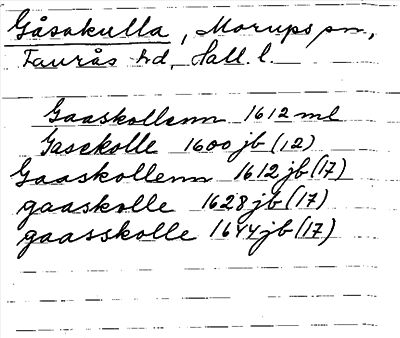 Gåsakulla, Morups sn,
Faurås hd, Hall. l.
Gaaskollenn 1612 ml
Gasekolle 1600 jb (12)
Gaaskollenn 1612 jb (17)
gaaskolle 1628 jb (17)
gaasskolle 1644 jb (17)